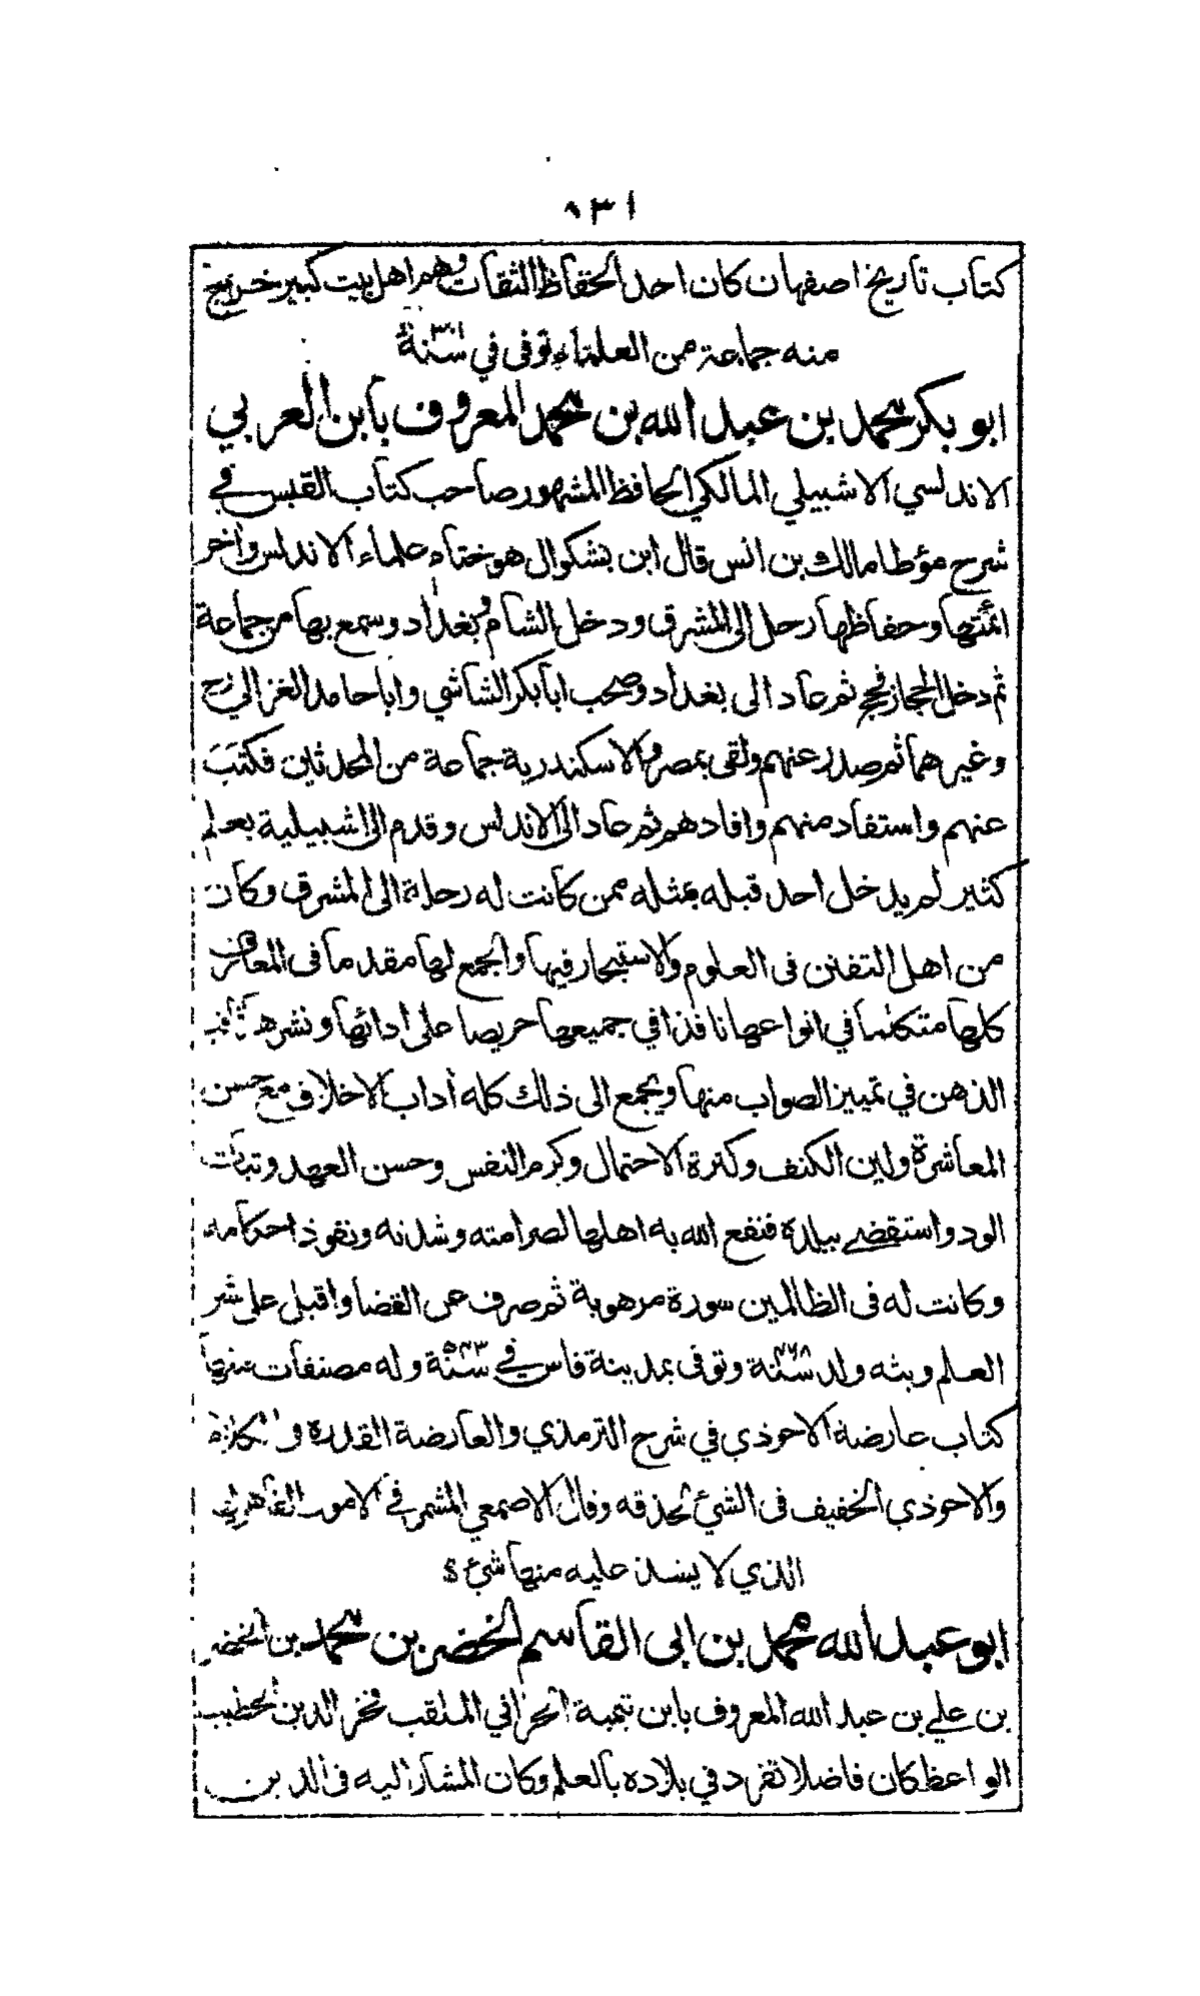 ١٣٨
كتاب تاريخ اصفهان كان احد الحفاظ الثقات وهم اهل بيت كبير خرج
منه جماعة من العلماء توفى في سنة ٣٠١
ابو بكر محمد بن عبد الله بن محمد المعروف بابن العربي
الاندلسي الاشبيلي المالكي الحافظ المشهور صاحب كتاب القبس في
شرح مؤطا مالك بن انس قال ابن بشكوال هو ختام علماء الاندلس واخر
ائمتها وحفاظها رحل الى المشرق ودخل الشام وبغداد وسمع بها من جماعة
ثم دخل الحجاز فحج ثم عاد الى بغداد وصحب ابا بكر الشاشي وابا حامد الغزالي رح
وغيرهما ثم صدر عنهم ولقى بمصر والاسكندرية جماعة من المحدثين فكتب
عنهم واستفاد منهم وافادهم ثم عاد الى الاندلس وقدم الى اشبيلية بعلم
كثير لم يدخل احد قبله بمثله ممن كانت له رحلة الى المشرق وكان
من اهل التفنن فى العلوم والاستبحار فيها والجمع لها مقدما فى المعارف
كلها متكلما في انواعها نافذا في جميعها حريصا على ادائها ونشرها ثاقب
الذهن في تمييز الصواب منها ويجمع الى ذلك كله آداب الاخلاق مع حسن
المعاشرة ولين الكنف وكثرة الاحتمال وكرم النفس وحسن العهد وثبات
الود واستقضى ببلده فنفع الله به اهلها لصرامته وشدته ونفوذ احكامه
وكانت له فى الظالمين سورة مرهوبة ثم صرف عن القضا واقبل على نشر
العلم وبثه ولد سنة ٤٦٨ وتوفى بمدينة فاس في سنة ٥٤٣ وله مصنفات منها
كتاب عارضة الاحوذي في شرح الترمذي والعارضة القدرة و
والاحوذي الخفيف فى الشئ لحذقه وقال الاصمعي المشمر في الامور القاهر لها
الذي لا يشذ عليه منها شئ
ابو عبد الله محمد بن ابى القاسم الخضر بن محمد بن الخضر
بن علي بن عبد الله المعروف بابن تيمية الحراني الملقب فخر الدين الخطيب
الواعظ كان فاضلا تفرد في بلاده بالعلم وكان المشار اليه فى الدين